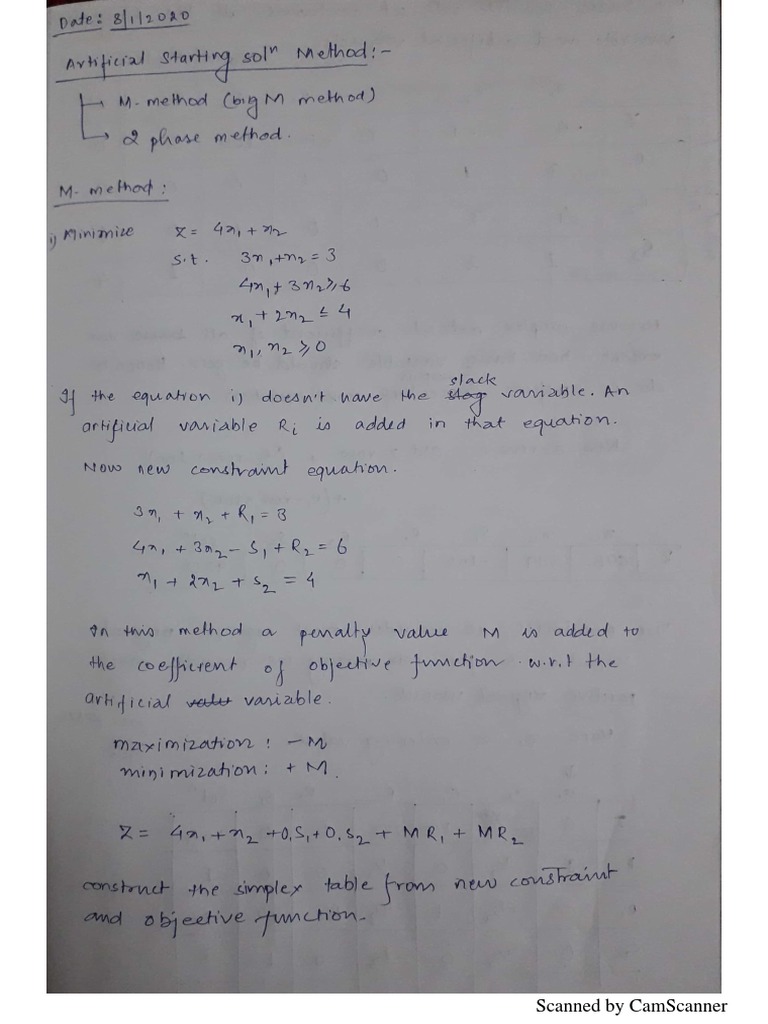 Date: 8/1/2020
Artificial Starting solⁿ Method:-
→ M-method (big M method)
→ 2 phase method.
M-method:
i) Minimize Z = 4x₁ + x₂
s.t. 3x₁ + x₂ = 3
4x₁ + 3x₂ ≥ 6
x₁ + 2x₂ ≤ 4
x₁, x₂ ≥ 0
slack
If the equation i) doesn't have the variable. An
artificial variable Rᵢ is added in that equation.
Now new constraint equation.
3x₁ + x₂ + R₁ = 3
4x₁ + 3x₂ - S₁ + R₂ = 6
x₁ + 2x₂ + S₂ = 4
In this method a penalty value M is added to
the coefficient of objective function w.r.t the
artificial variable.
maximization: -M
minimization: + M.
Z = 4x₁ + x₂ + 0.S₁ + 0.S₂ + MR₁ + MR₂
construct the simplex table from new constraint
and objective function.
Scanned by CamScanner